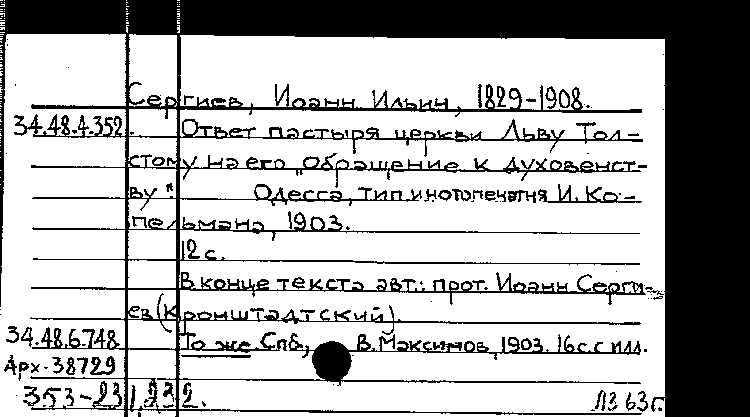 Сергиев, Иоанн Ильич, 1829-1908.
34.48.4.352. Ответ пастыря церкви Льву Тол-
стому на его „Обращение к духовенст-
ву". Одесса, тип. и нотопечатня И. Ко-
пельмана, 1903.
12 с.
В конце текста авт.: прот. Иоанн Серги-
ев (Кронштадтский).
34.48.6.748 То же. Спб., В. Максимов, 1903. 16 с. с илл.
Арх. 38729
353-23 1,23 2. ЛЗ 63г.